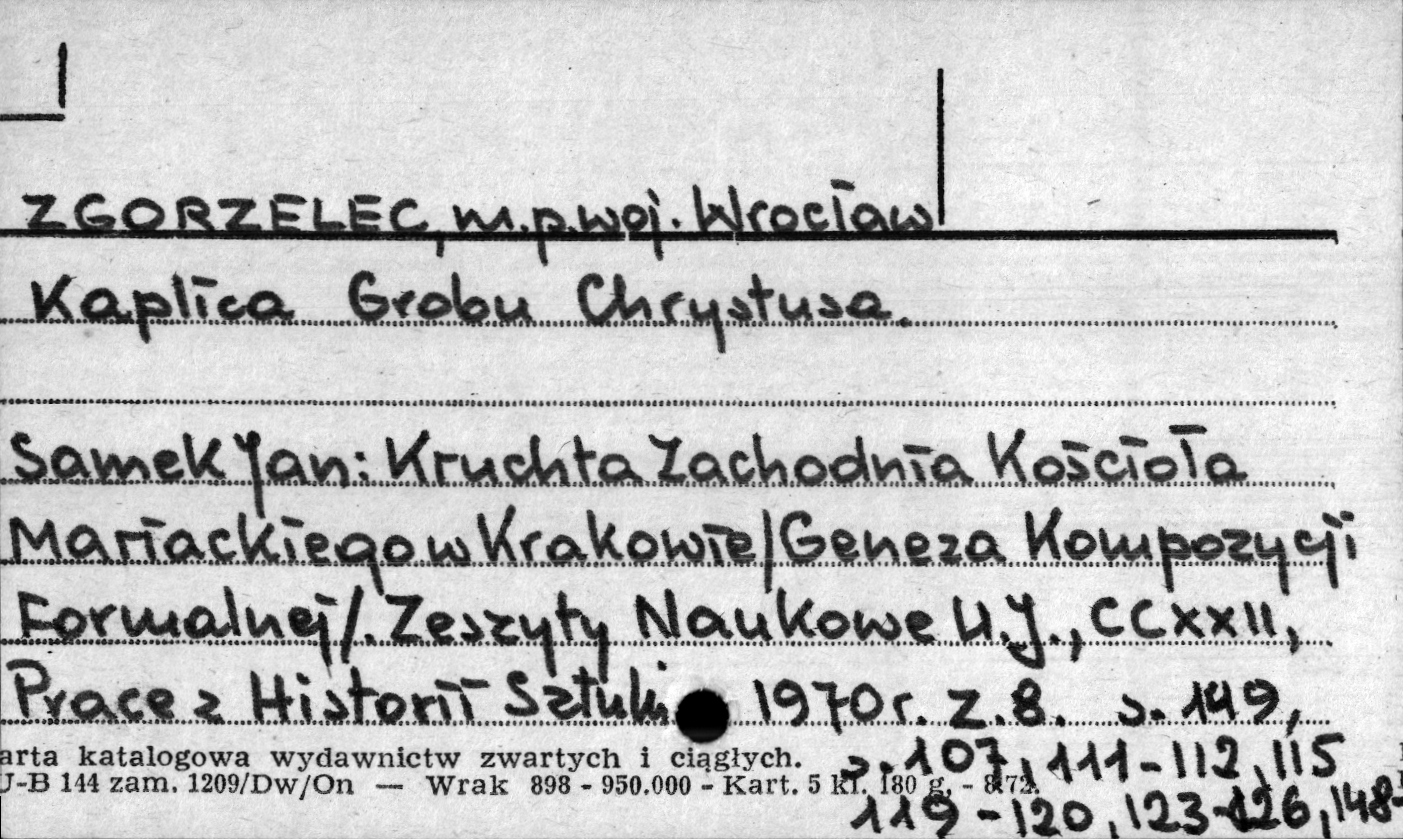 ZGORZELEC, m.p.woj. Wrocław
Kaplica Grobu Chrystusa.
Samek Jan: Kruchta Zachodnia Kościoła
Mariackiego w Krakowie/Geneza Kompozycji
Formalnej/. Zeszyty Naukowe U.J., CCXXII,
Prace z Historii Sztuki 1970r. Z.8. s. 149,
s. 107, 111-112, 115
119-120, 123-126, 148-
arta katalogowa wydawnictw zwartych i ciągłych.
J-B 144 zam. 1209/Dw/On — Wrak 898 - 950.000 - Kart. 5 kl. 180 g. - 8.72.